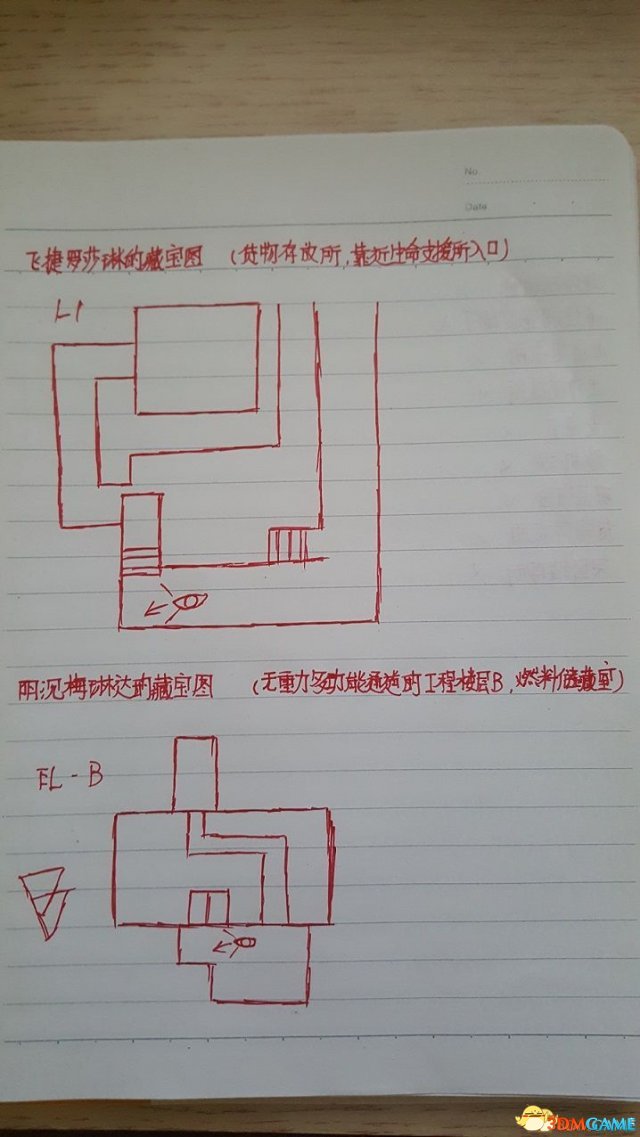 No
Date
飞捷罗莎琳的藏宝图 (货物存放所,靠近生命支援所入口)
L1
阴沉梅琳达的藏宝图 (无重力多功能通道的工程楼层B,燃料储藏室)
EL-B
3DMGAME